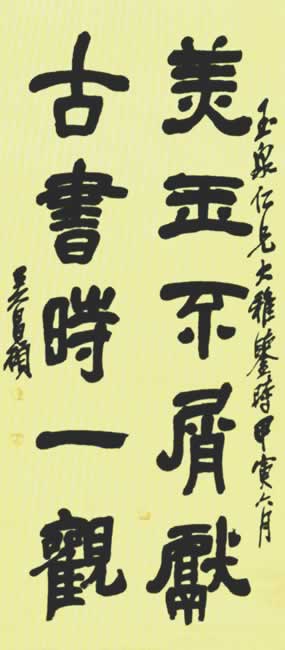 玉泉仁兄大雅鑒時甲寅六月
美玉不屑獻
古書時一觀
吳昌碩